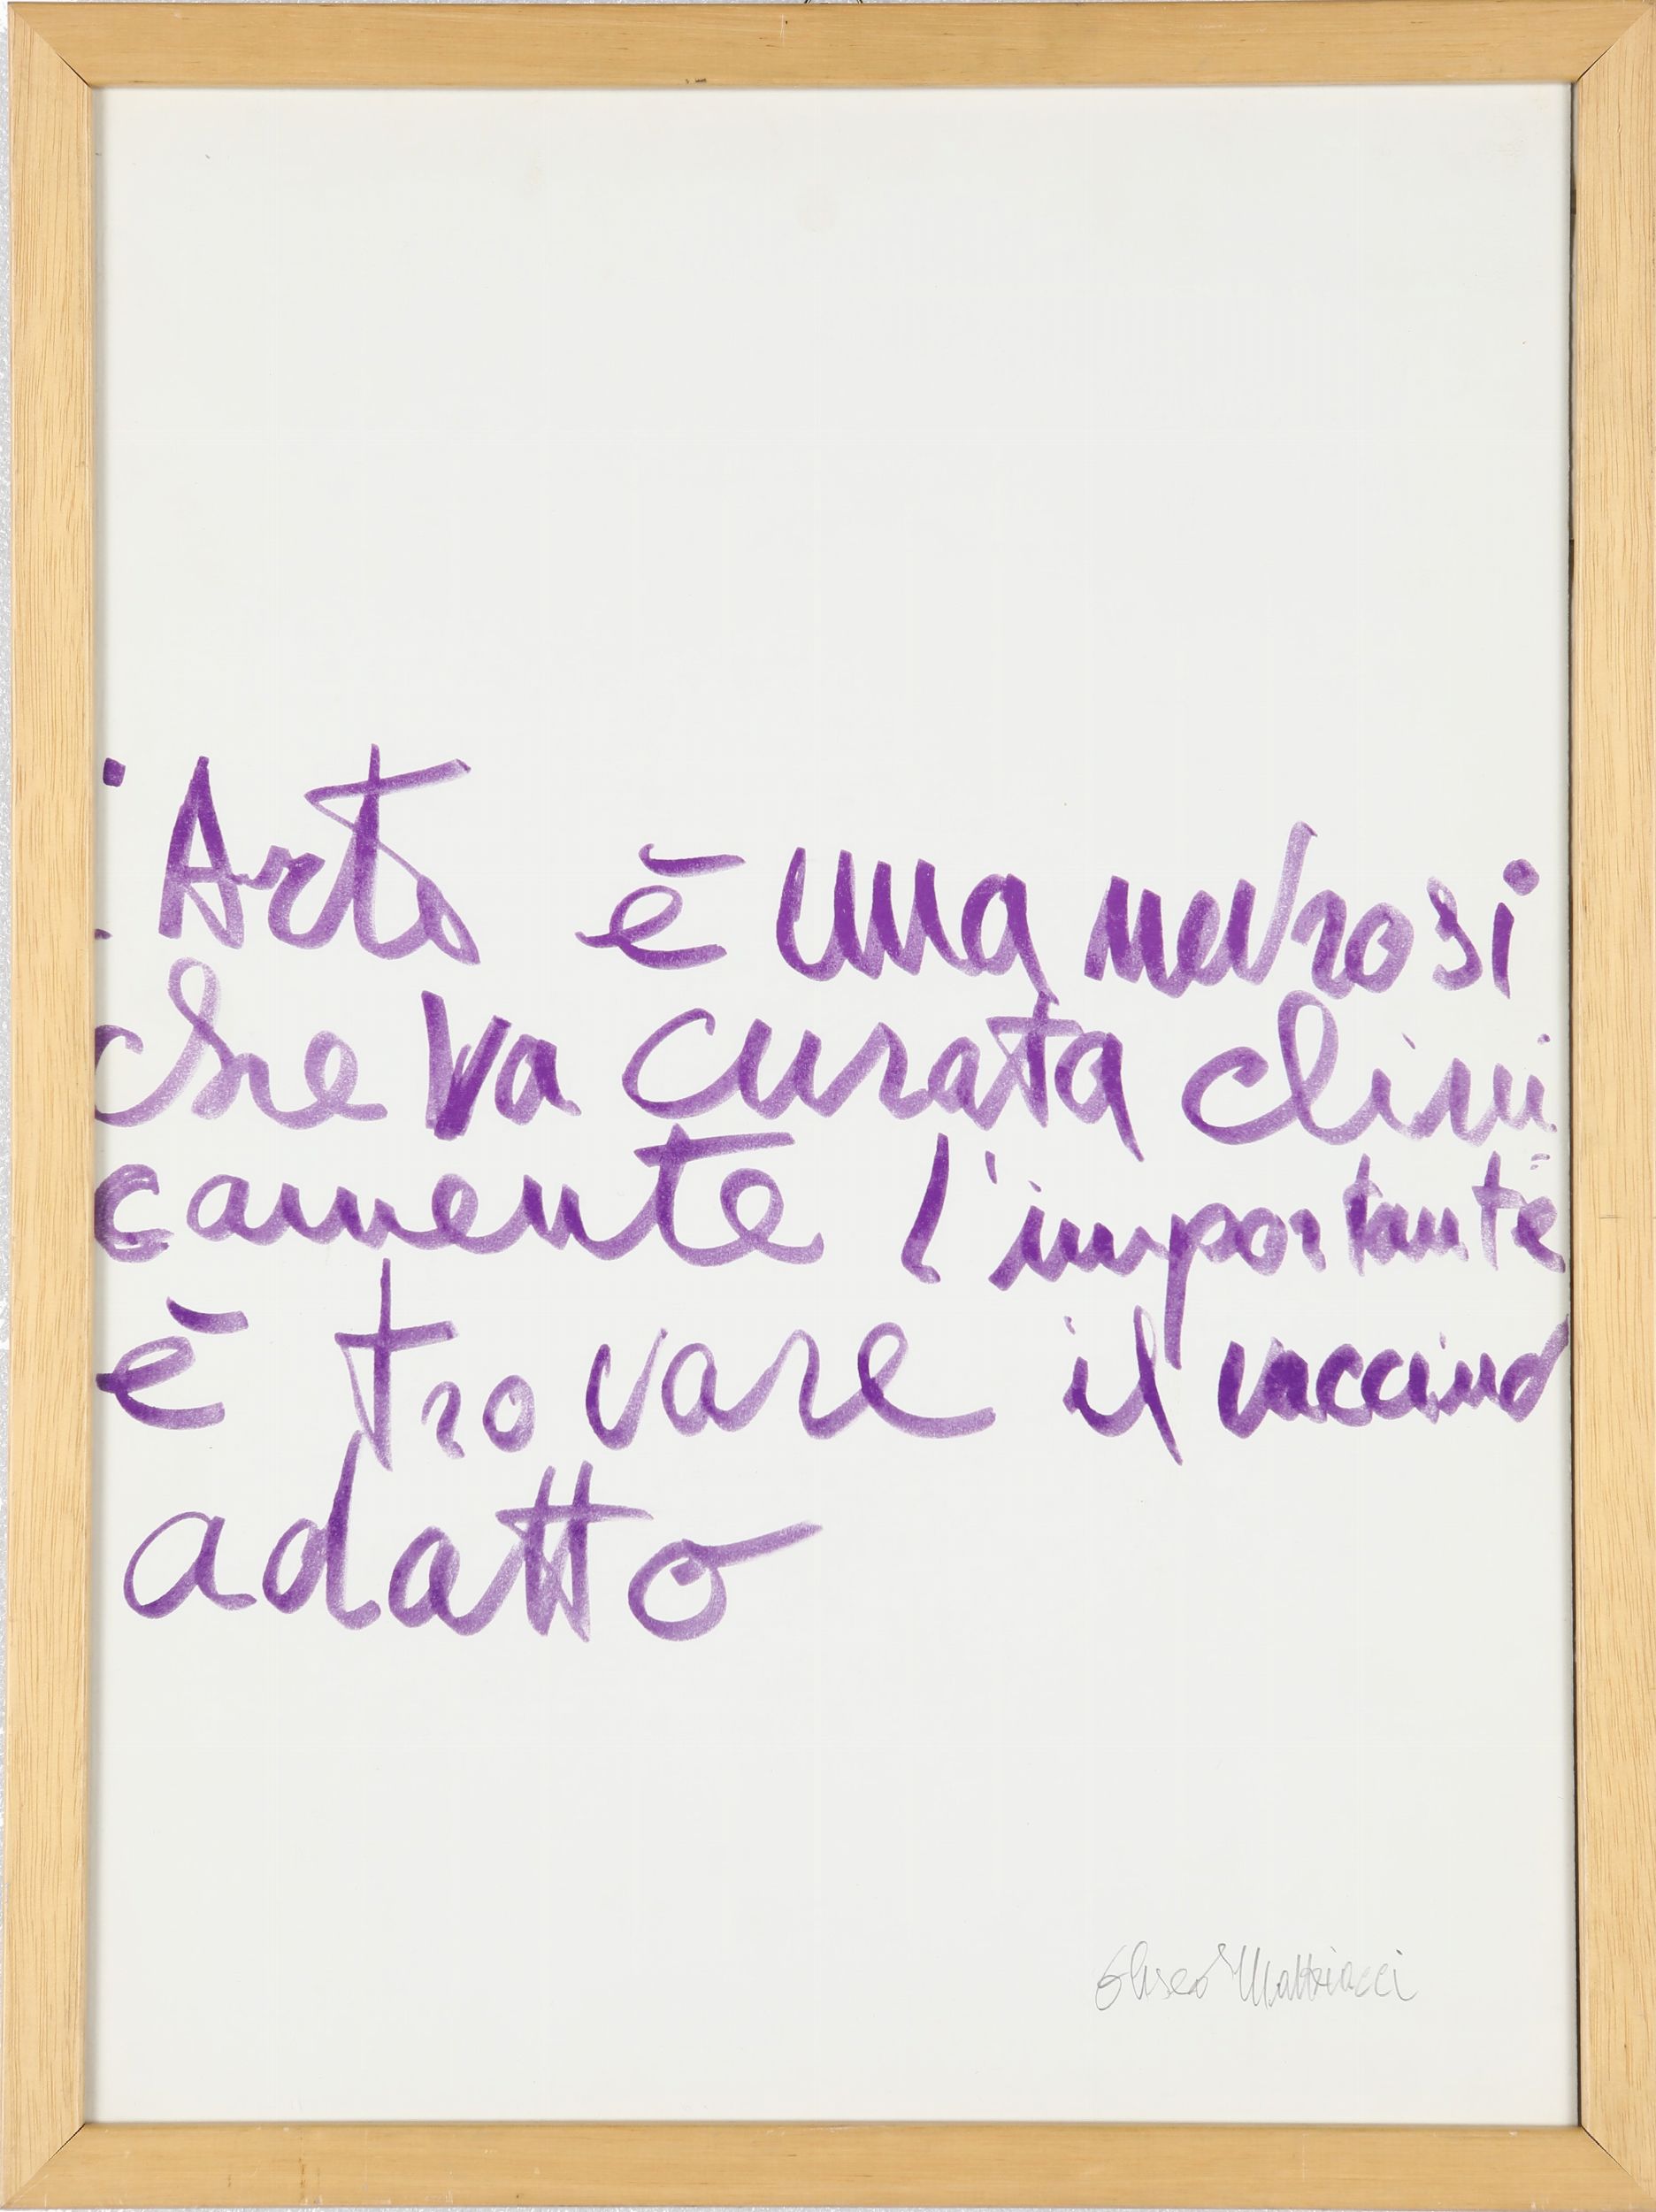 'Arte è una nevrosi
che va curata clini=
camente l'importante
è trovare il vaccino
adatto
Eliseo Mattiacci